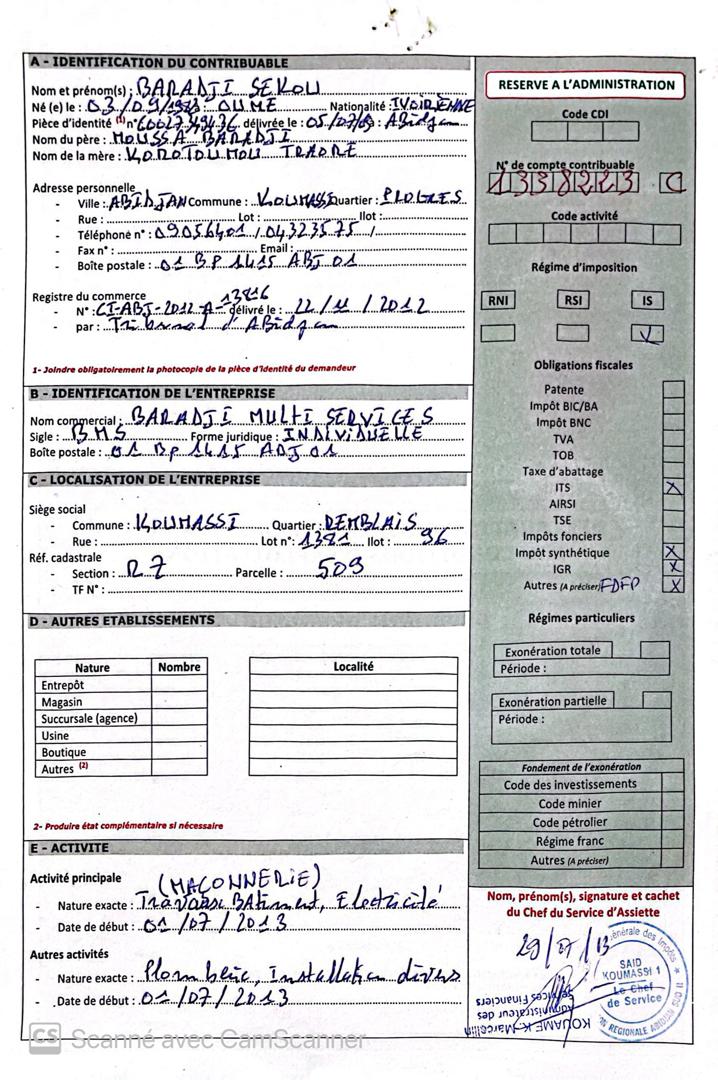 A - IDENTIFICATION DU CONTRIBUABLE
Nom et prénom(s) : BARADJI SEKOU
Né (e) le : 03/09/1973 OUME Nationalité : IVOIRIENNE
Pièce d'identité (1) n° délivrée le : Abidjan
Nom du père : MOUSSA BARADJI
Nom de la mère : KOROTOUMOU TRAORE
Adresse personnelle
- Ville : ABIDJAN Commune : KOUMASSI Quartier : PROGRES
- Rue : Lot : Ilot :
- Téléphone n° : 09056401 / 04323575 /
- Fax n° : Email :
- Boîte postale : 01 BP 1415 ABJ 01
Registre du commerce
- N° : CI-ABJ-2012-A-13816 délivré le : 22/11/2012
- par : Tribunal d'Abidjan
1- Joindre obligatoirement la photocopie de la pièce d'identité du demandeur
B - IDENTIFICATION DE L'ENTREPRISE
Nom commercial : BARADJI MULTI SERVICES
Sigle : BMS Forme juridique : INDIVIDUELLE
Boîte postale : 01 BP 1415 ABJ 01
C - LOCALISATION DE L'ENTREPRISE
Siège social
- Commune : KOUMASSI Quartier : REMBLAIS
- Rue : Lot n° : 1381 Ilot : 96
Réf. cadastrale
- Section : RZ Parcelle : 509
- TF N° :
D - AUTRES ETABLISSEMENTS
Nature Nombre Localité
Entrepôt
Magasin
Succursale (agence)
Usine
Boutique
Autres (2)
2- Produire état complémentaire si nécessaire
E - ACTIVITE
Activité principale (MAÇONNERIE)
- Nature exacte : Travaux BAtiment, Electricité
- Date de début : 01/07/2013
Autres activités
- Nature exacte : Plomberie, Installation divers
- Date de début : 01/07/2013
RESERVE A L'ADMINISTRATION
Code CDI
N° de compte contribuable
1338223 C
Code activité
Régime d'imposition
RNI RSI IS
X
Obligations fiscales
Patente
Impôt BIC/BA
Impôt BNC
TVA
TOB
Taxe d'abattage
ITS X
AIRSI
TSE
Impôts fonciers
Impôt synthétique X
IGR X
Autres (A préciser) FDFP X
Régimes particuliers
Exonération totale
Période :
Exonération partielle
Période :
Fondement de l'exonération
Code des investissements
Code minier
Code pétrolier
Régime franc
Autres (A préciser)
Nom, prénom(s), signature et cachet
du Chef du Service d'Assiette
29/07/13
KOUAME K. Marcellin
Administrateur des
Services Financiers
Générale des Impôts
SAID
KOUMASSI 1
Le Chef
de Service
REGIONALE ABIDJAN
CS Scanné avec CamScanner